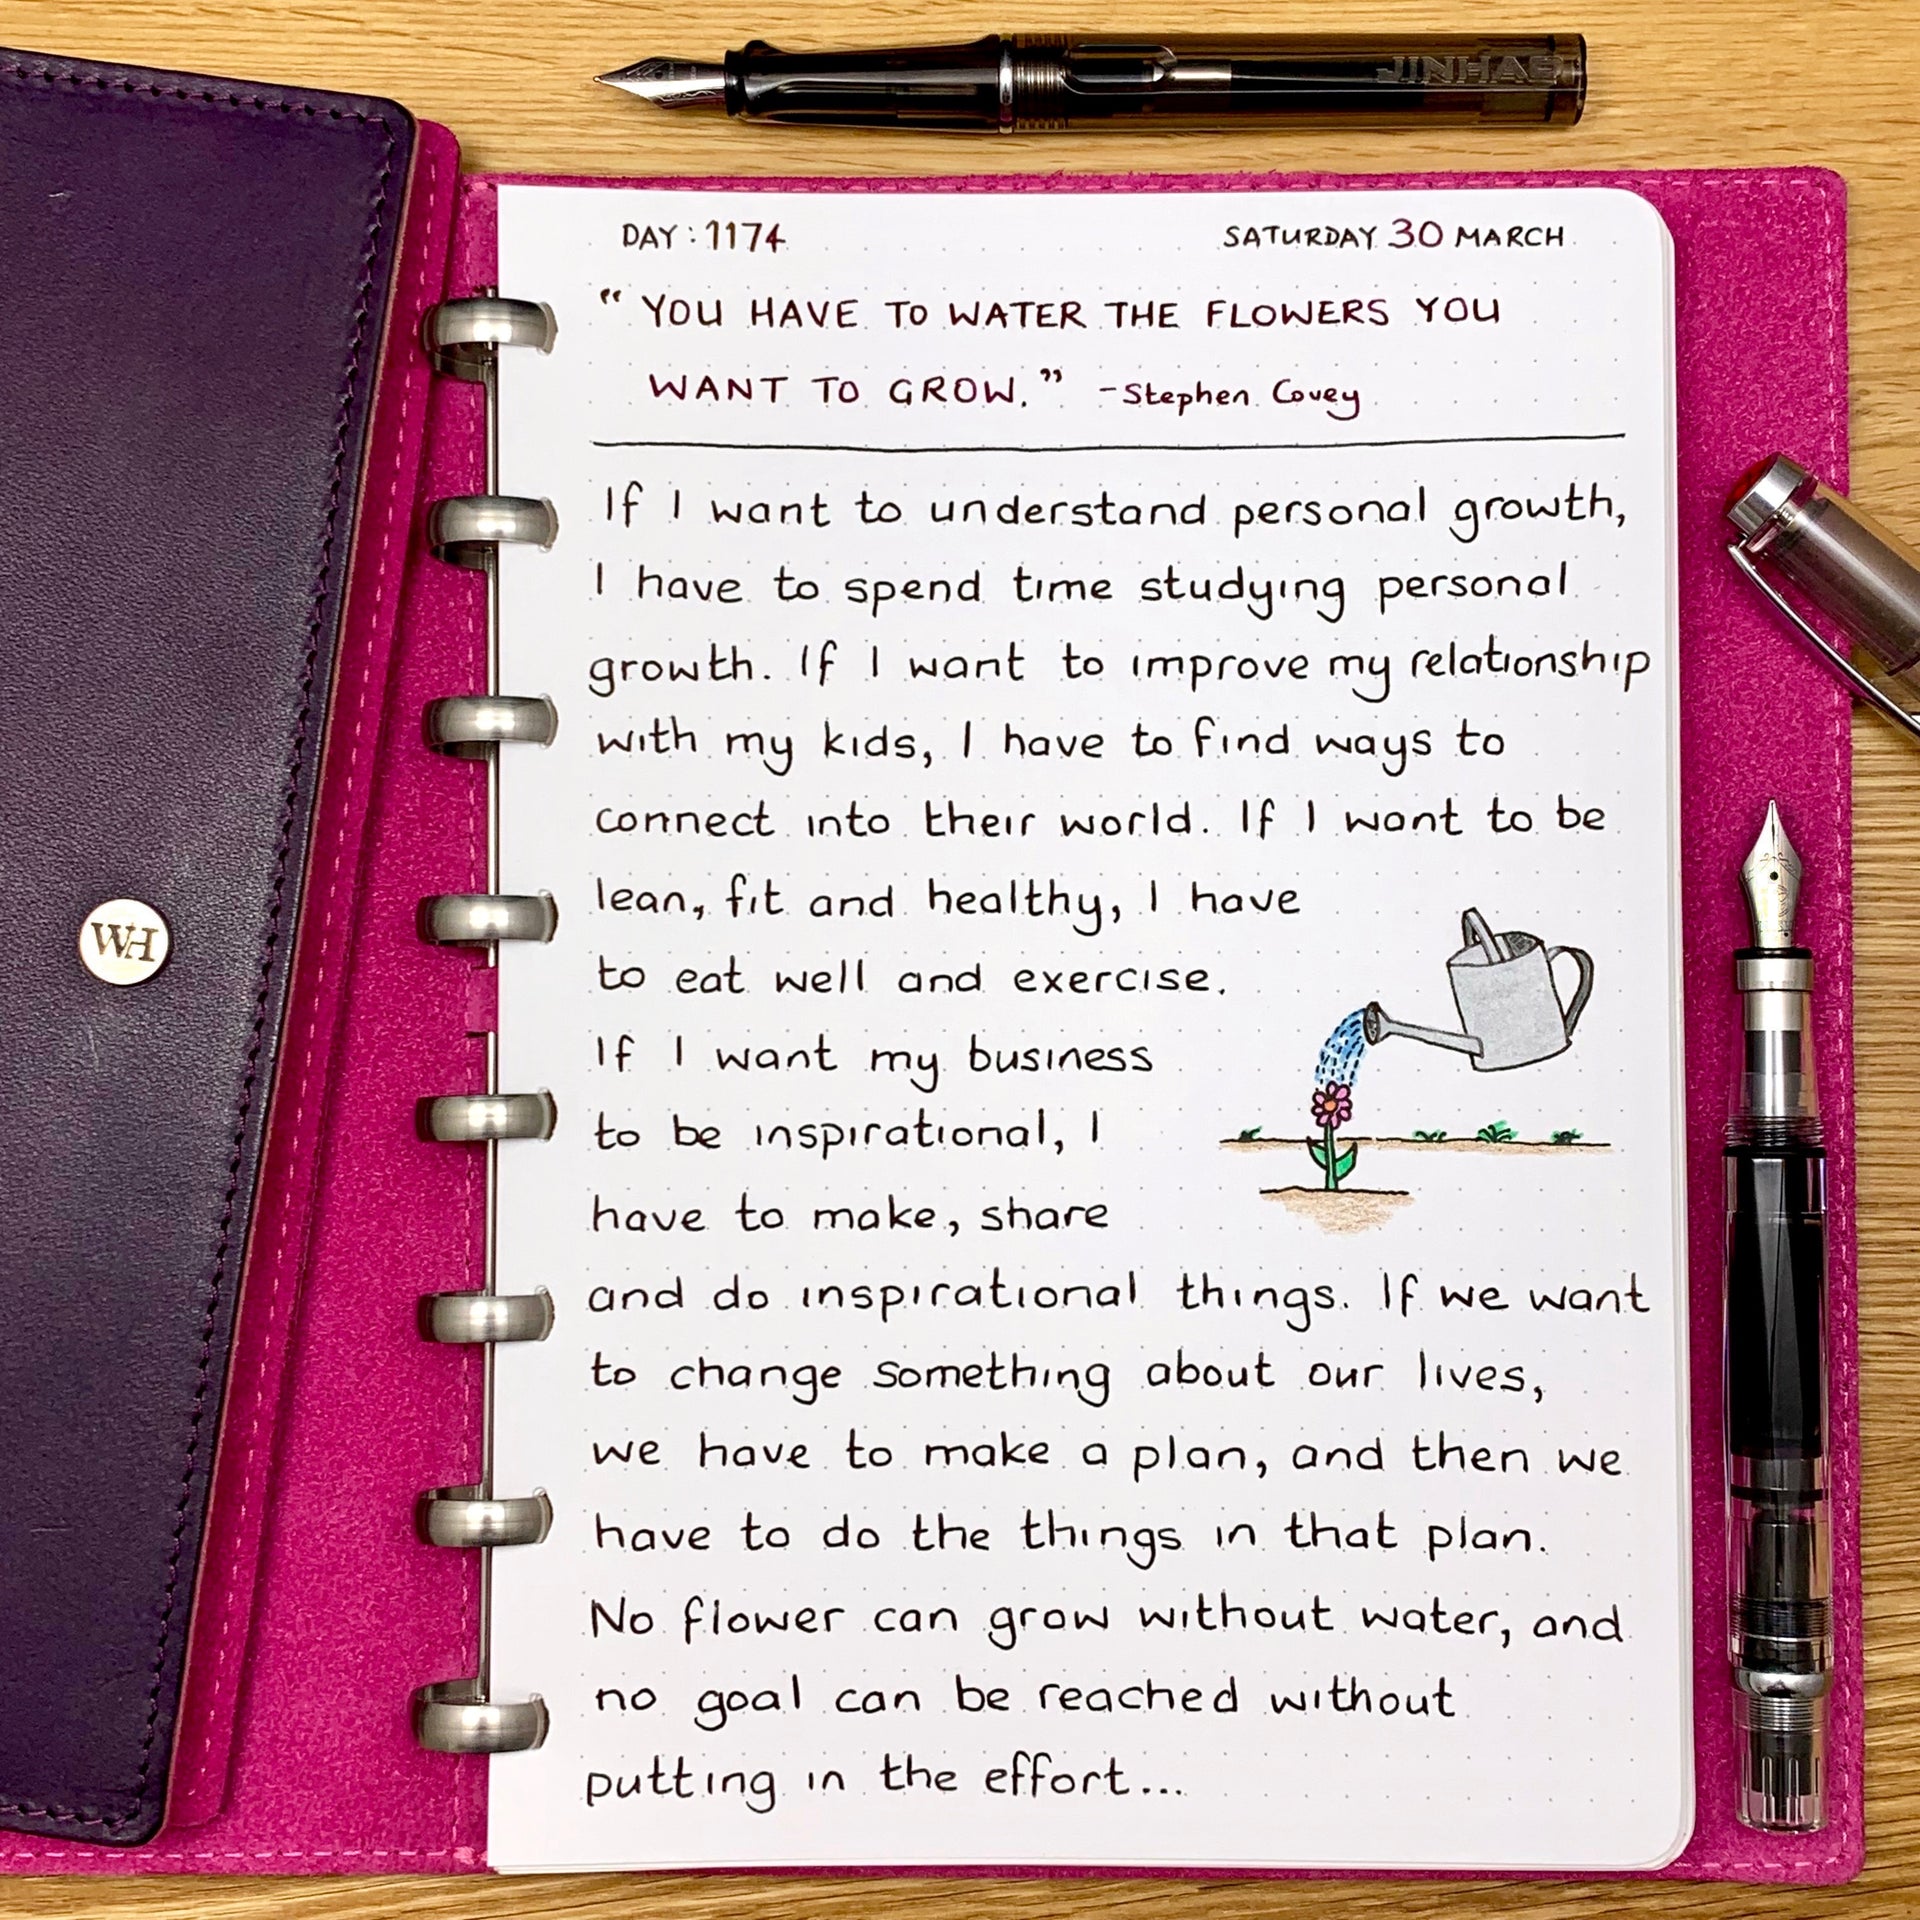 JINHAO
DAY: 1174
SATURDAY 30 MARCH
“YOU HAVE TO WATER THE FLOWERS YOU
WANT TO GROW.” -Stephen Covey
If I want to understand personal growth,
I have to spend time studying personal
growth. If I want to improve my relationship
with my kids, I have to find ways to
connect into their world. If I want to be
lean, fit and healthy, I have
to eat well and exercise.
If I want my business
to be inspirational, I
have to make, share
and do inspirational things. If we want
to change something about our lives,
we have to make a plan, and then we
have to do the things in that plan.
No flower can grow without water, and
no goal can be reached without
putting in the effort...
WH